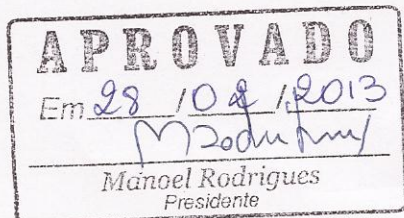 APROVADO
Em 28 / 02 / 2013
Manoel Rodrigues
Presidente